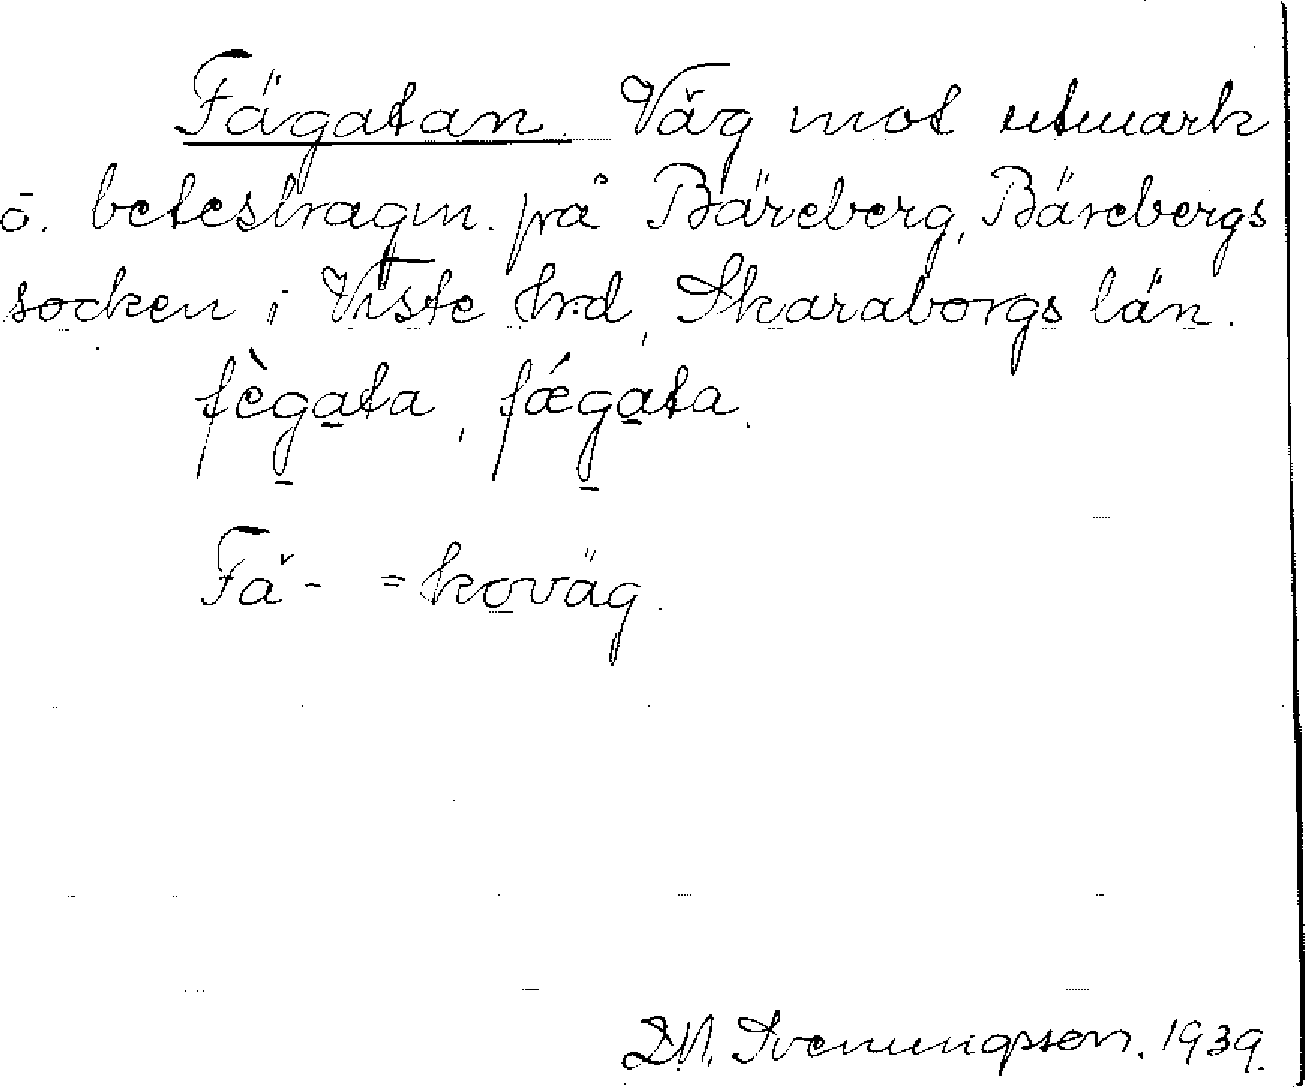 Fägatan. Väg mot utmark
o. betestragm. på Bäreberg, Bärebergs
socken i Viste hrd, Skaraborgs län.
fègata, fǽgata.
Fä- = koväg.
Svenungsson. 1939.